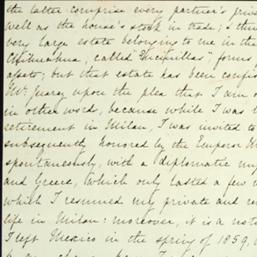 the latter comprise every partner's priv
well as the house's stock in trade; I thin
very large estate belonging to me in the
Chihuahua, called Encinillas; forms
assets; but that estate has been confis
Mr. Juarez upon the plea that I am
in other word, because while I was l
retirement in Milan, I was invited to
subsequently honored by the Emperor M
spontaneously, with a diplomatic mi
and Greece, (which only lasted a few
which I resumed my private and re
life in Milan: moreover, it is a noto
I left Mexico in the spring of 1859,